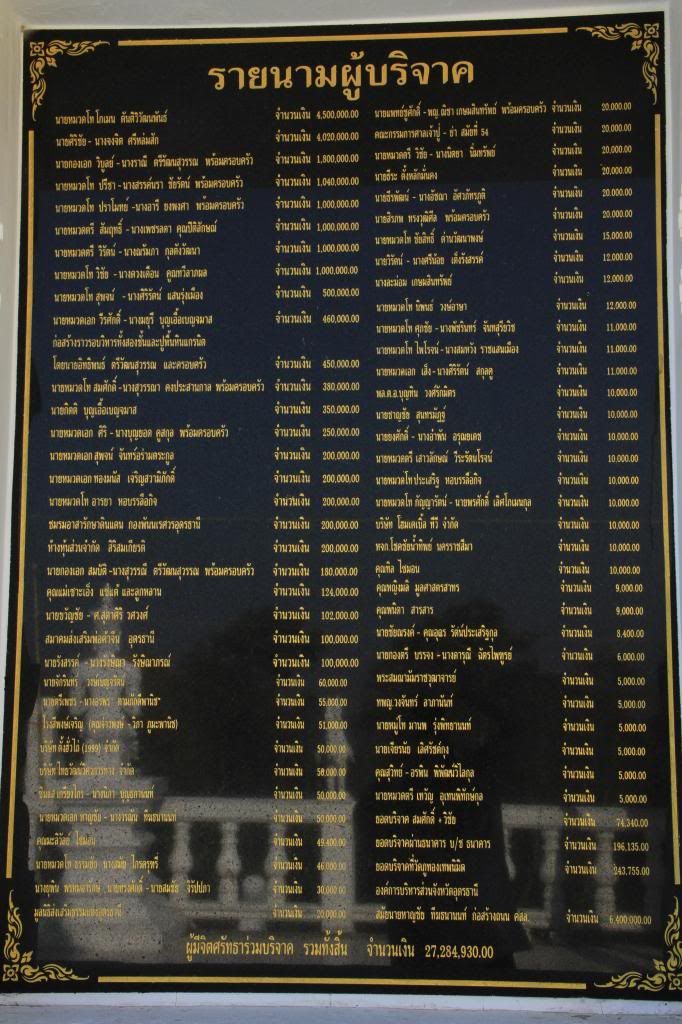 รายนามผู้บริจาค
นายหมวดโท โกเมน ตันติวิวัฒพันธ์ จำนวนเงิน 4,500,000.00
นายศิริชัย - นางจงจิต ศรีหล่มสัก จำนวนเงิน 4,020,000.00
นายกองเอก วิบูลย์ - นางราณี ตรีวัฒนสุวรรณ พร้อมครอบครัว จำนวนเงิน 1,800,000.00
นายหมวดโท ปรีชา - นางสรรค์นรา ชัยรัตน์ พร้อมครอบครัว จำนวนเงิน 1,040,000.00
นายหมวดโท ปราโมทย์ -นางอารี ยงพงศา พร้อมครอบครัว จำนวนเงิน 1,000,000.00
นายหมวดตรี สัมฤทธิ์ - นางเพชรลดา คูณปิติลักษณ์ จำนวนเงิน 1,000,000.00
นายหมวดตรี วิรัตน์ - นางณรัมภา กุลตังวัฒนา จำนวนเงิน 1,000,000.00
นายหมวดโท วิชัย - นางดวงเดือน คูณทวีลาภผล จำนวนเงิน 1,000,000.00
นายหมวดโท สุพจน์ - นางศิริรัตน์ แสนรุ่งเมือง จำนวนเงิน 500,000.00
นายหมวดเอก วีรศักดิ์ - นางมยุรี บุญเอื้อเบญจมาส จำนวนเงิน 460,000.00
ก่อสร้างราวรอบวิหารทั้งสองชั้นและปูพื้นหินแกรนิต
โดยนายอิทธิพนธ์ ตรีวัฒนสุวรรณ และครอบครัว จำนวนเงิน 450,000.00
นายหมวดโท สมศักดิ์ - นางสุวรรณา คงประสานกาล พร้อมครอบครัว จำนวนเงิน 380,000.00
นายกิตติ บุญเอื้อเบญจมาส จำนวนเงิน 350,000.00
นายหมวดเอก ศิริ - นางบุญยอด คูสกุล พร้อมครอบครัว จำนวนเงิน 250,000.00
นายหมวดเอก สุพจน์ จันทร์อร่ามตระกูล จำนวนเงิน 200,000.00
นายหมวดเอก ทองมนัส เจริญสวามิภักดิ์ จำนวนเงิน 200,000.00
นายหมวดโท อารยา หอบรรลือกิจ จำนวนเงิน 200,000.00
ชมรมอาสารักษาดินแดน กองพันนเรศวรอุดรธานี จำนวนเงิน 200,000.00
ห้างหุ้นส่วนจำกัด สิริสมเกียรติ จำนวนเงิน 200,000.00
นายกองเอก สมบัติ -นางสุวรรณี ตรีวัฒนสุวรรณ พร้อมครอบครัว จำนวนเงิน 180,000.00
คุณแม่เซาะเฮ็ง แซ่แต้ และลูกหลาน จำนวนเงิน 124,000.00
นายขวัญชัย - ศ.สุดาศิริ วศวงศ์ จำนวนเงิน 102,000.00
สมาคมส่งเสริมพ่อค้าจีน อุดรธานี จำนวนเงิน 100,000.00
นายรังสรรค์ - นางรังษิณา รังษิณาภรณ์ จำนวนเงิน 100,000.00
นายจักรินทร์ วงษ์เบญจรัตน์ จำนวนเงิน 60,000.00
นายตรีเพชร - นางอุพร ตามภักดีพานิช จำนวนเงิน 55,000.00
โรงสีพงษ์เจริญ วิภา ภูมะพานิช) จำนวนเงิน 51,000.00
บริษัท ตั้งฮั่วไถ่ (1999) จำกัด จำนวนเงิน 50,000.00
บริษัท ไทยวัฒน์วิศวการทาง จำกัด จำนวนเงิน 50,000.00
บุญธกานนท์ จำนวนเงิน 50,000.00
นายหมวดเอก หาญชัย - ทีฆธนานนท์ จำนวนเงิน 50,000.00
ไชโมน จำนวนเงิน 49,400.00
นายหมวดโท ธรรมชัย ไกรตรฤทธิ์ จำนวนเงิน 46,000.00
นายสมชัย จิรัปปภา จำนวนเงิน 30,000.00
มูลนิธิส่งเสริมธรรมแห่งอุดรธานี จำนวนเงิน 20,000.00
นายแพทย์ชูศักดิ์ - พญ.ณิชา เกษมสินทรัพย์ พร้อมครอบครัว จำนวนเงิน 20,000.00
คณะกรรมการศาลเจ้าปู่ - ย่า สมัยที่ 54 จำนวนเงิน 20,000.00
นายหมวดตรี วิชัย - นางนิตยา นิ่มทรัพย์ จำนวนเงิน 20,000.00
นายธีระ ตั้งหลักมั่นคง จำนวนเงิน 20,000.00
นายธีรพัฒน์ - นางอัชฌา อัศวภัทรภูติ จำนวนเงิน 20,000.00
นายสิรภพ ทรงวุฒิศีล พร้อมครอบครัว จำนวนเงิน 20,000.00
นายหมวดโท ชัยสิทธิ์ ด่านวัฒนาพงษ์ จำนวนเงิน 15,000.00
นายวิรัตน์ - นางศรีน้อย เต็งรังสรรค์ จำนวนเงิน 12,000.00
นางละม่อม เกษมสินทรัพย์ จำนวนเงิน 12,000.00
นายหมวดโท นิพนธ์ วงษ์อาษา จำนวนเงิน 12,000.00
นายหมวดโท ศุภชัย - นางพัชรินทร์ จันทสุริยวิช จำนวนเงิน 11,000.00
นายหมวดโท ไพโรจน์ - นางสมหวัง ราชแสนเมือง จำนวนเงิน 11,000.00
นายหมวดเอก เส็ง - นางศิริรัตน์ สกุลคู จำนวนเงิน 11,000.00
พล.ต.อ.บุญทิน วงศ์รักมิตร จำนวนเงิน 10,000.00
นายชาญชัย สุนทรมัฏฐ์ จำนวนเงิน 10,000.00
นายยงศักดิ์ - นางอำพัน อรุณยเดช จำนวนเงิน 10,000.00
นายหมวดตรี เสาวลักษณ์ วีระรัตนโรจน์ จำนวนเงิน 10,000.00
นายหมวดโท ประเสริฐ หอบรรลือกิจ จำนวนเงิน 10,000.00
นายหมวดโท กัญญารัตน์ - นายพรศักดิ์ เลิศโกเมนกุล จำนวนเงิน 10,000.00
บริษัท โฮมเคเบิ้ล ทีวี จำกัด จำนวนเงิน 10,000.00
หจก.โชคชัยน้ำทิพย์ นครราชสีมา จำนวนเงิน 10,000.00
คุณทิล ไซมอน จำนวนเงิน 10,000.00
คุณหญิงมลิ มูลศาสตรสาทร จำนวนเงิน 9,000.00
คุณพนิดา สารสาร จำนวนเงิน 9,000.00
นายชัยณรงค์ - คุณอุดร รัตน์ประเสริฐกุล จำนวนเงิน 8,400.00
นายกองตรี บรรจง - นางดารุณี ฉัตรไพฑูรย์ จำนวนเงิน 6,000.00
พระสมณานัมราชวุฒาจารย์ จำนวนเงิน 5,000.00
ทพญ.วงจันทร์ อาภานันท์ จำนวนเงิน 5,000.00
นายหมู่โท มานพ รุ่งพิทยานนท์ จำนวนเงิน 5,000.00
นายเจียรนัย เลิศรัชต์กุง จำนวนเงิน 5,000.00
คุณสุวิทย์ - อรพิน พิพัฒน์วิไลกุล จำนวนเงิน 5,000.00
นายหมวดตรี เทวัญ อุเทนพิทักษ์กุล จำนวนเงิน 5,000.00
ยอดบริจาค สมศักดิ์ + วิชัย จำนวนเงิน 74,340.00
ยอดบริจาคผ่านธนาคาร บ/ช ธนาคาร จำนวนเงิน 196,135.00
ยอดบริจาคที่วัดภูทองเทพนิมิต จำนวนเงิน 243,755.00
องค์การบริหารส่วนจังหวัดอุดรธานี
สมัยนายหาญชัย ทีฆธนานนท์ ก่อสร้างถนน คสล. จำนวนเงิน 6,400,000.00
ผู้มีจิตศรัทธาร่วมบริจาค รวมทั้งสิ้น จำนวนเงิน 27,284,930.00